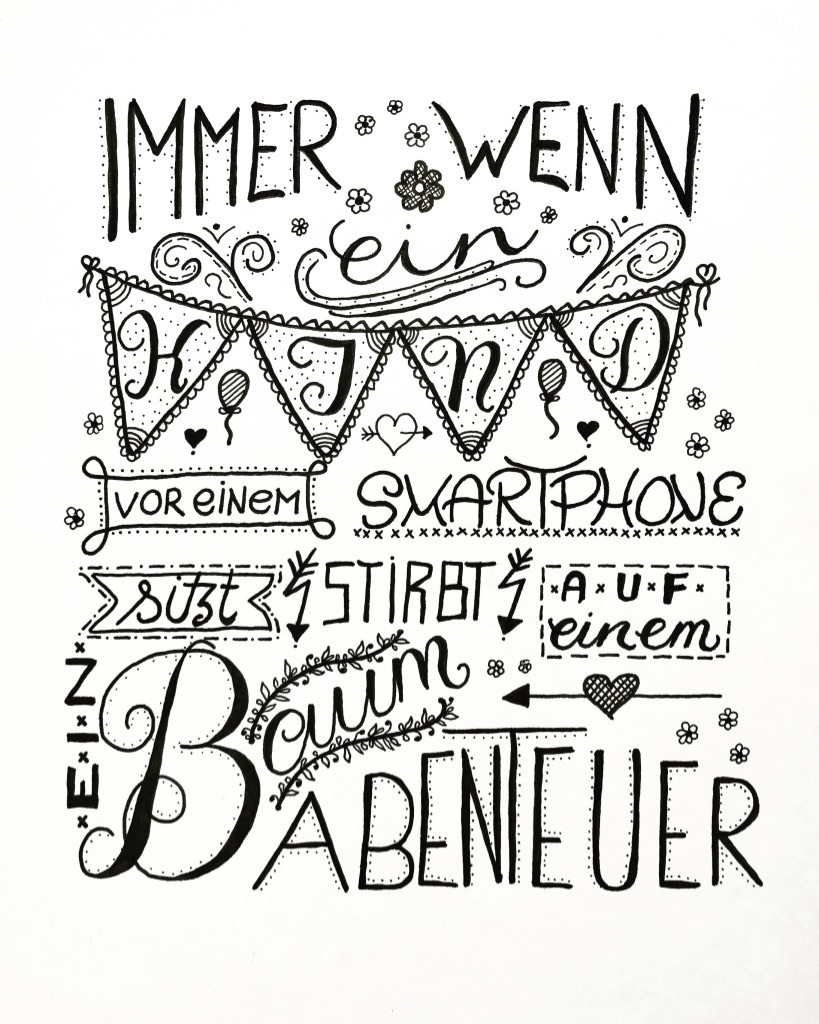 IMMER WENN
ein
KIND
VOR EINEM SMARTPHONE
sitzt STIRBT AUF
einem
Baum EIN
ABENTEUER